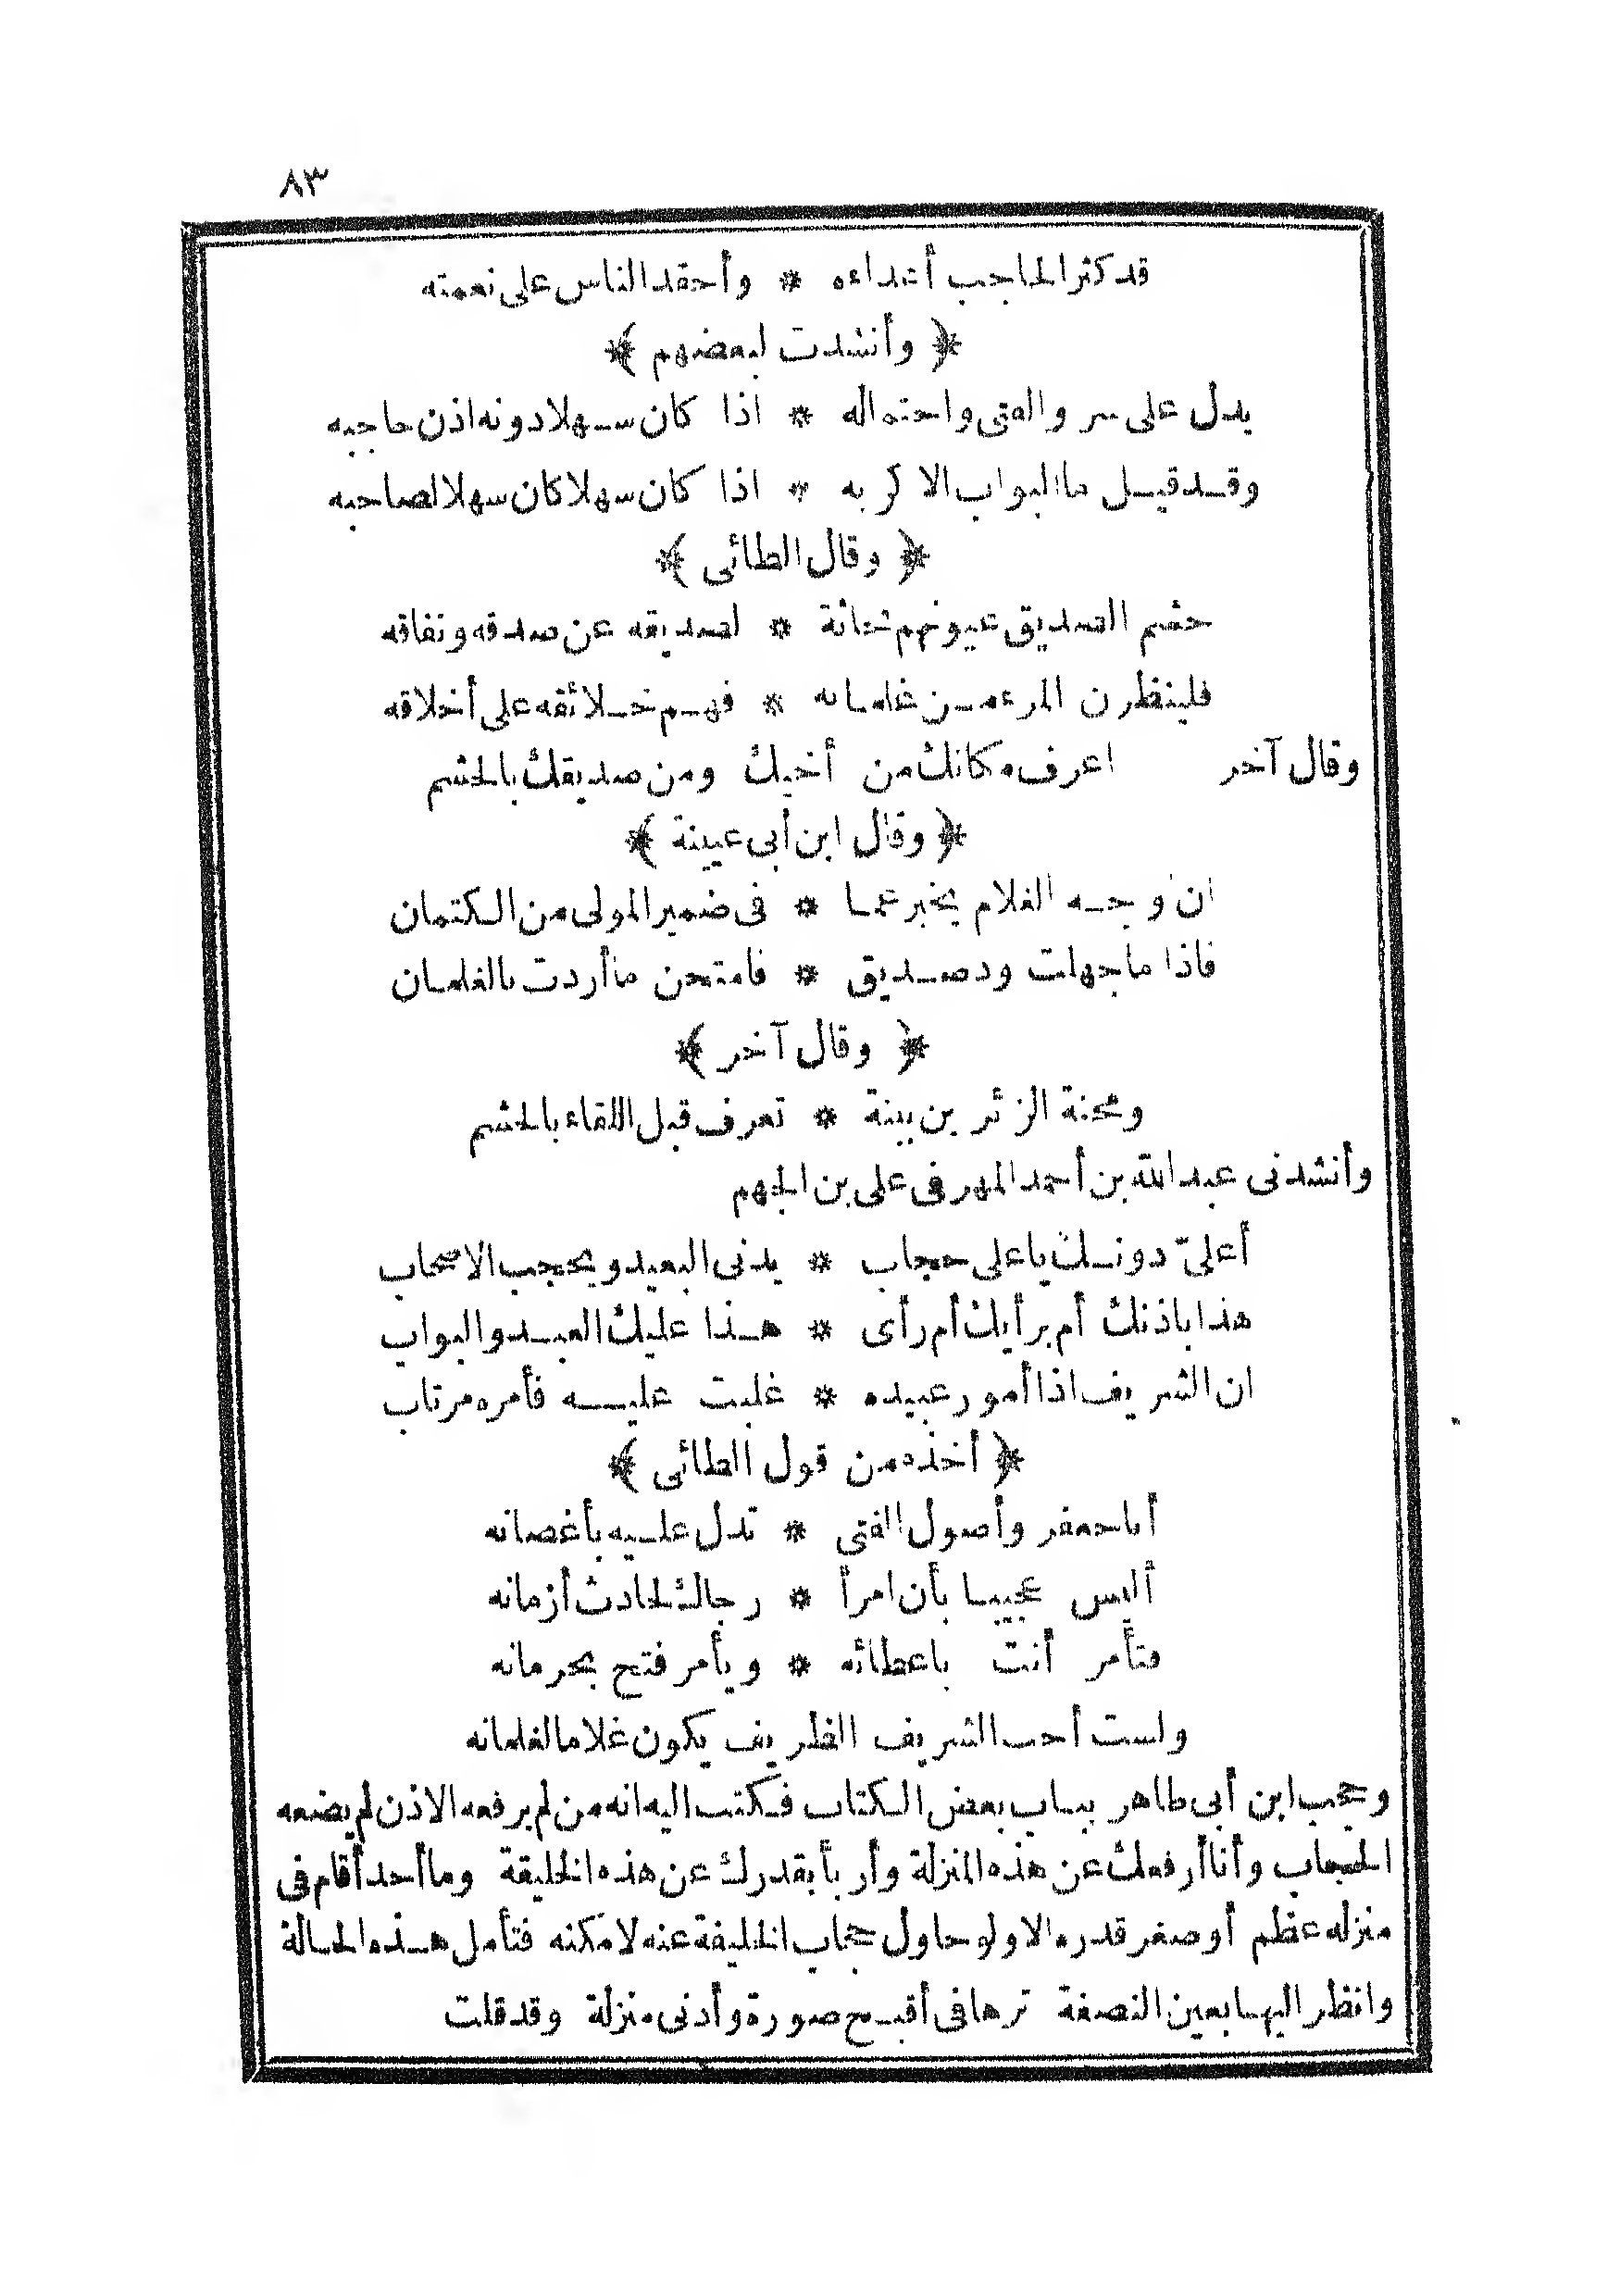 ٨٣
قد كثر الحاجب أعداءه * وأحقد الناس على نعمته
﴿ وأنشدت لبعضهم ﴾
يدل على سر والفتى واحتماله * اذا كان سهلا دونه اذن حاجبه
وقد قيل ما البواب الا كربه * اذا كان سهلا كان سهلا لصاحبه
﴿ وقال الطائى ﴾
حشم الصديق عيونهم بحاثة * لصديقه عن صدقه ونفاقه
فلينظرن المرء من غلمانه * فهم خلائقه على أخلاقه
وقال آخر اعرف مكانك من أخيك ومن صديقك بالحشم
﴿ وقال ابن أبى عيينة ﴾
ان وجه الغلام يخبر عما * فى ضمير المولى من الكتمان
فاذا ما جهلت ود صديق * فامتحن ما أردت بالغلمان
﴿ وقال آخر ﴾
ومحنة الزئرين بينة * تعرف قبل اللقاء بالحشم
وأنشدنى عبد الله بن أحمد المهر فى على بن الجهم
أعلىّ دونك ياعلى حجاب * يدنى البعيد ويحجب الاصحاب
هذا باذنك أم برأيك أم رأى * هذا عليك العبد والبواب
ان الشريف اذا أمور عبيده * غلبت عليه فأمره مرتاب
﴿ أخذه من قول الطائى ﴾
أبا جعفر وأصول الفتى * تدل عليه بأغصانه
أليس عجيبا بأن امرأ * رجاك لحادث أزمانه
فتأمر أنت باعطائه * ويأمر فتح بحرمانه
ولست أحب الشريف الظريف يكون غلاما لغلمانه
وحجب ابن أبى طاهر بباب بعض الكتاب فكتب اليه انه من لم يرفعه الاذن لم يضعه
الحجاب وأنا أرفعك عن هذه المنزلة وأربأ بقدرك عن هذه الخليقة وما أحد أقام فى
منزله عظم أو صغر قدره الا ولو حاول حجاب الخليفة عنه لامكنه فتأمل هذه الحالة
وانظر اليها بعين النصفة ترها فى أقبح صورة وأدنى منزلة وقد قلت